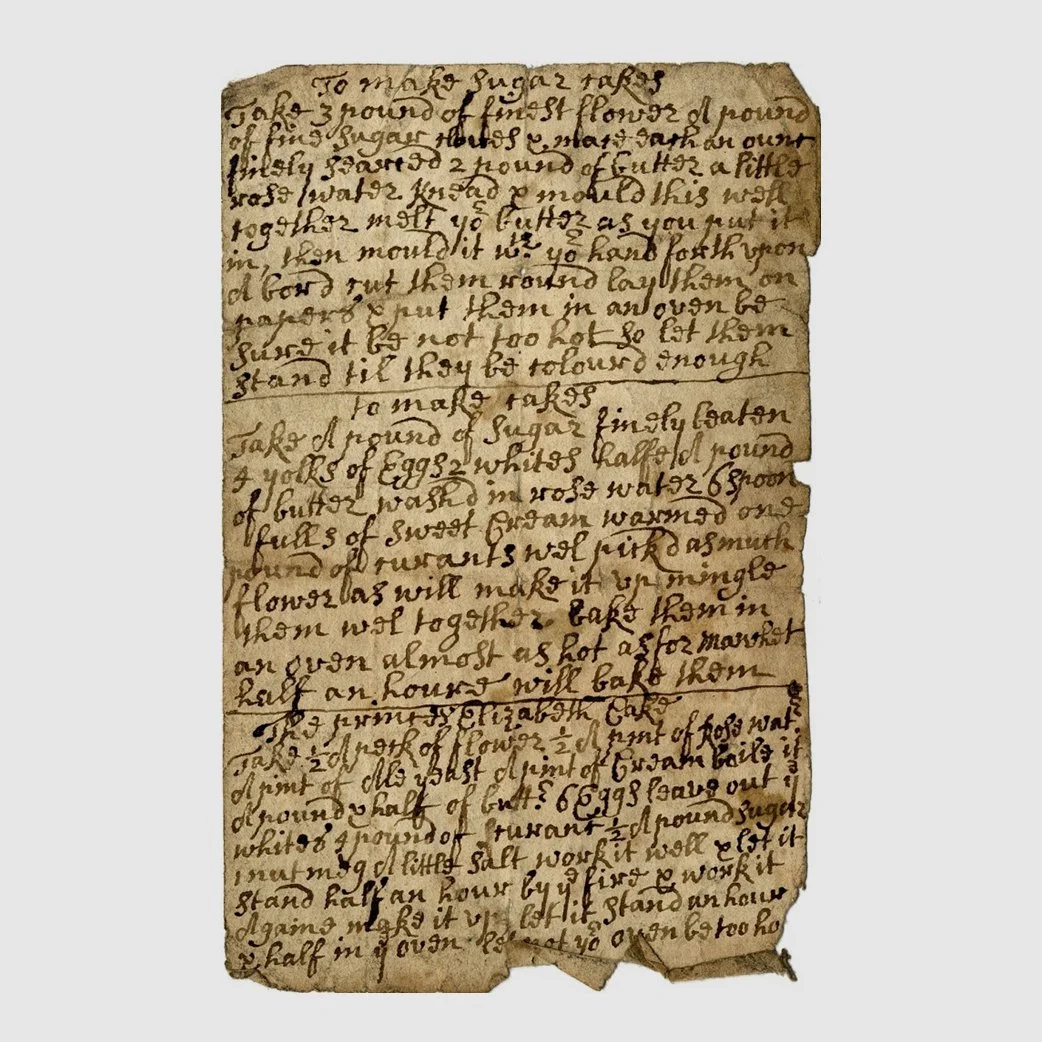 To make Sugar cakes
Take 3 pound of finest flower A pound
of fine Sugar cloves & mace each an ounc
finely searced 2 pound of butter a little
rose water knead & mould this well
together melt yoʳ butter as you put it
in, then mould it wᵗʰ yoʳ hand forth vpon
A bord cut them round lay them on
papers & put them in an oven be
sure it be not too hot so let them
stand til they be colourd enough
to make cakes
Take A pound of Sugar finely beaten
4 yolks of Eggs 2 whites halfe A pound
of butter washd in rose water 6 spoon
fulls of sweet Cream warmed one
pound of curants wel pickd as much
flower as will make it vp mingle
them wel together bake them in
an oven almost as hot as for manchet
half an houre will bake them
The princes Elizabeth Cake
Take ½ A peck of flower ½ A pint of Rose watʳ
A pint of Ale yeast A pint of Cream boile it
A pound & half of buttʳ 6 Eggs leave out yᵉ
whites 4 pound of Curant ½ A pound Sugar
nutmeg A little Salt work it well & let it
stand half an hour by yᵉ fire & work it
Againe make it vp let it stand an hour
& half in yᵉ oven let not yoʳ oven be too ho